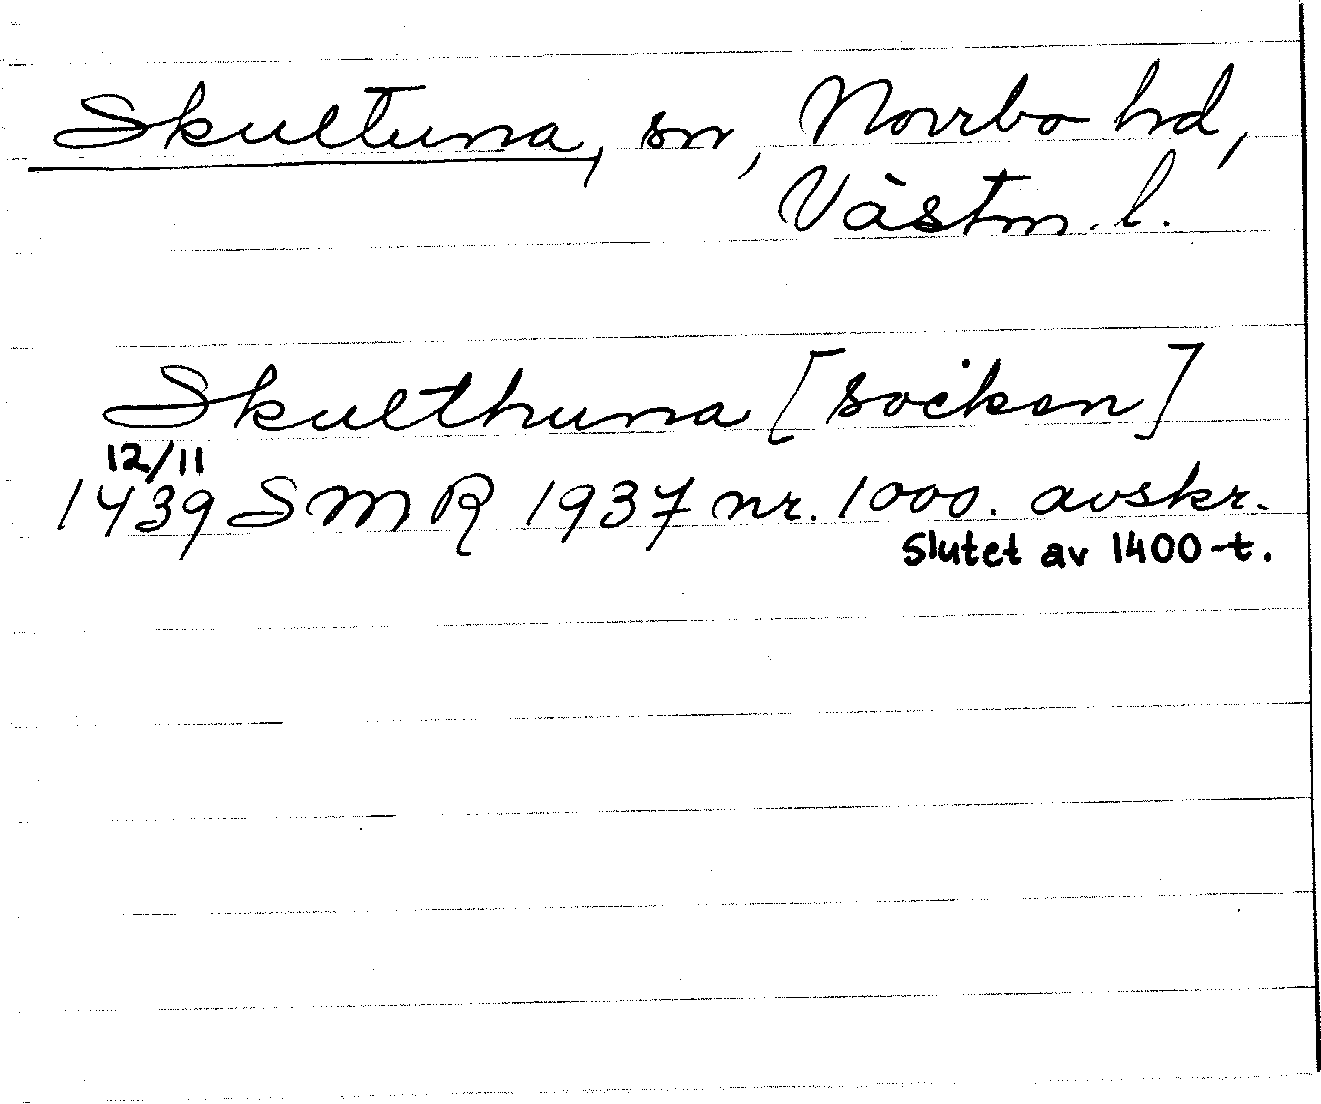 Skultuna, sn, Norrbo hd,
Västm. l.
Skulthuna [soëken]
12/11
1439 SMR 1937 nr. 1000. avskr.
Slutet av 1400-t.